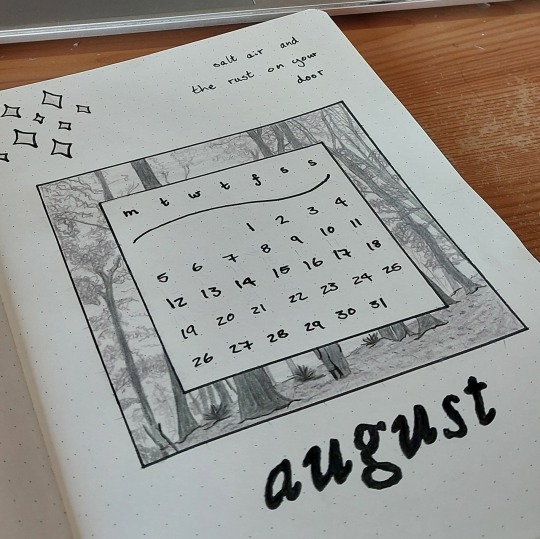 salt air and
the rust on your
door
m t w t f s s
1 2 3 4
5 6 7 8 9 10 11
12 13 14 15 16 17 18
19 20 21 22 23 24 25
26 27 28 29 30 31
august